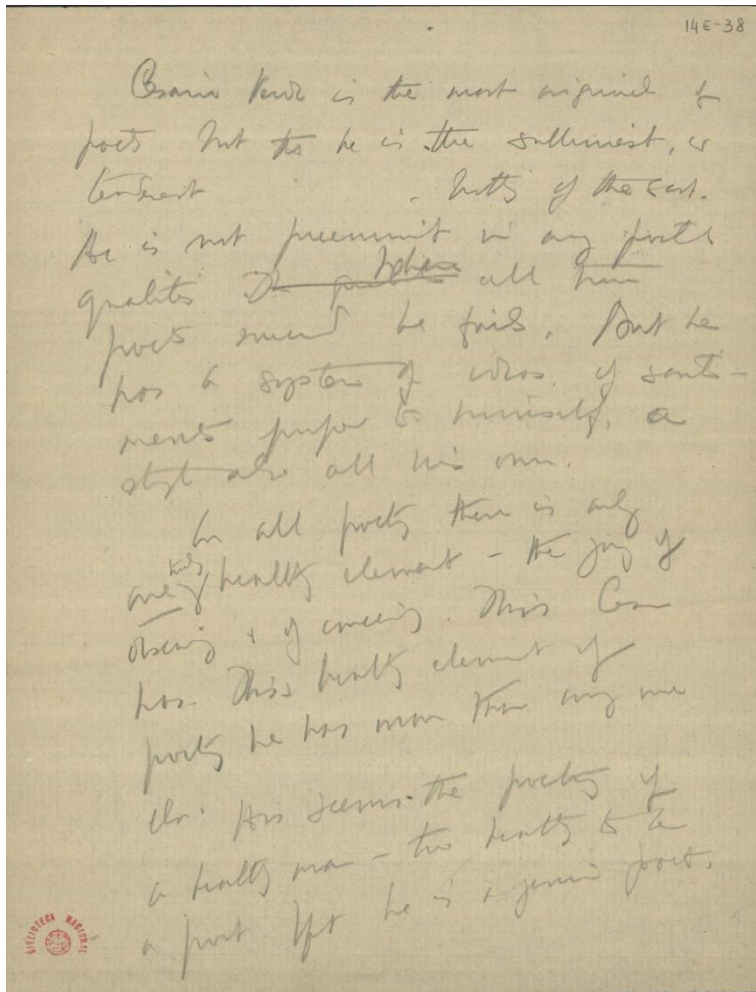 14E-38
Cesario Verde is the most original of
poets. Not tha he is the sublimest, or
tenderest . Nothing of the sort.
He is not preeminent in any poetic
quality. Where all true
poets succeed he fails. But he
has a system of ideas, of senti-
ments proper to himself, a
style also all his own.
In all poetry there is only
one truly healthy element - the joy of
observing & of conceiving. This Cesario
has. This healthy element of
poetry he has more than any one
else. His seems the poetry of
a healthy man - too healthy to be
a poet. Yet he is a genuine poet.
BIBLIOTECA NACIONAL